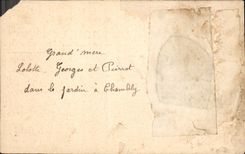 Grand'mère
Lolotte Georges et Pierrot
dans le jardin à Chambly